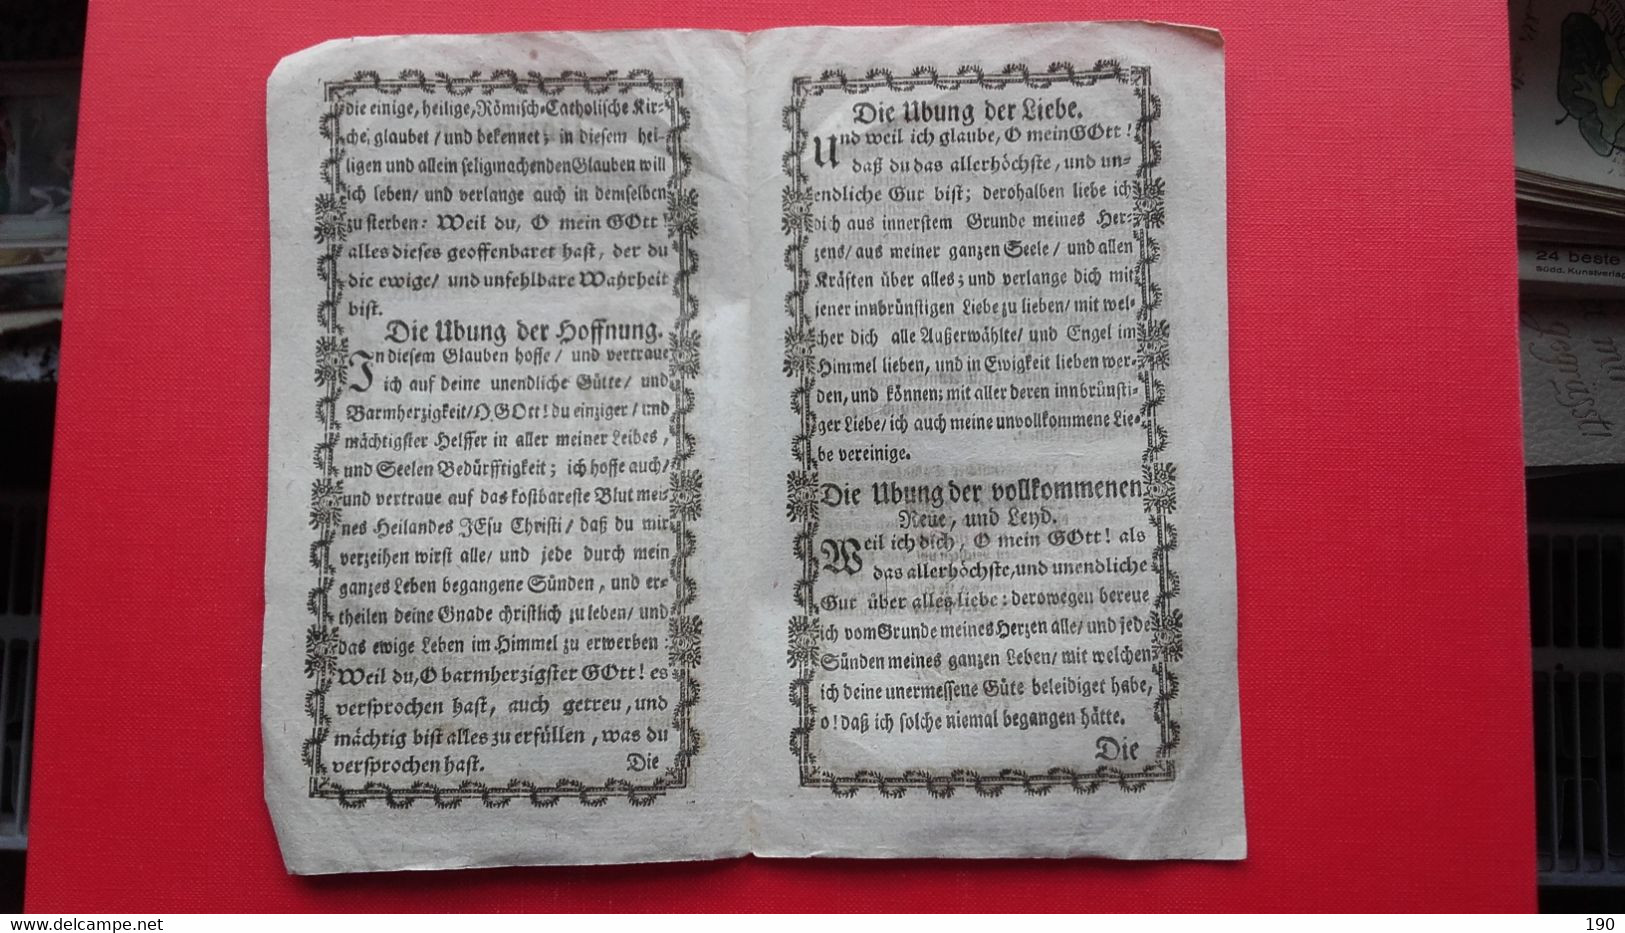 die einige, heilige, Römisch-Catholische Kir-
che, glaubet / und bekennet; in diesem hei-
ligen und allein seligmachenden Glauben will
ich leben/ und verlange auch in demselben
zu sterben: Weil du, O mein GOtt!
alles dieses geoffenbaret hast, der du
die ewige/ und unfehlbare Wahrheit
bist.
Die Ubung der Hoffnung.
In diesem Glauben hoffe / und vertraue
ich auf deine unendliche Gütte/ und
Barmherzigkeit/ O GOtt! du einziger / und
mächtigster Helffer in aller meiner Leibes,
und Seelen Bedürfftigkeit; ich hoffe auch/
und vertraue auf das kostbareste Blut mei-
nes Heilandes JEsu Christi/ daß du mir
verzeihen wirst alle/ und jede durch mein
ganzes Leben begangene Sünden, und er-
theilen deine Gnade christlich zu leben/ und
das ewige Leben im Himmel zu erwerben:
Weil du, O barmherzigster GOtt! es
versprochen hast, auch getreu, und
mächtig bist alles zu erfüllen, was du
versprochen hast. Die
Die Ubung der Liebe.
Und weil ich glaube, O mein GOtt!
daß du das allerhöchste, und un-
endliche Gut bist; derohalben liebe ich
dich aus innerstem Grunde meines Her-
zens/ aus meiner ganzen Seele / und allen
Kräften über alles; und verlange dich mit
jener innbrünstigen Liebe zu lieben/ mit wel-
cher dich alle Außerwählte/ und Engel im
Himmel lieben, und in Ewigkeit lieben wer-
den, und können; mit aller deren innbrünsti-
ger Liebe/ ich auch meine unvollkommene Lie-
be vereinige.
Die Ubung der vollkommenen
Reue, und Leyd.
Weil ich dich, O mein GOtt! als
das allerhöchste, und unendliche
Gut über alles liebe: derowegen bereue
ich vom Grunde meines Herzen alle/ und jede
Sünden meines ganzen Leben/ mit welchen
ich deine unermessene Güte beleidiget habe,
o! daß ich solche niemal begangen hätte.
Die
24 beste
Südd. Kunstverlag
gemüsst!
delcampe.net
the-wolf
190